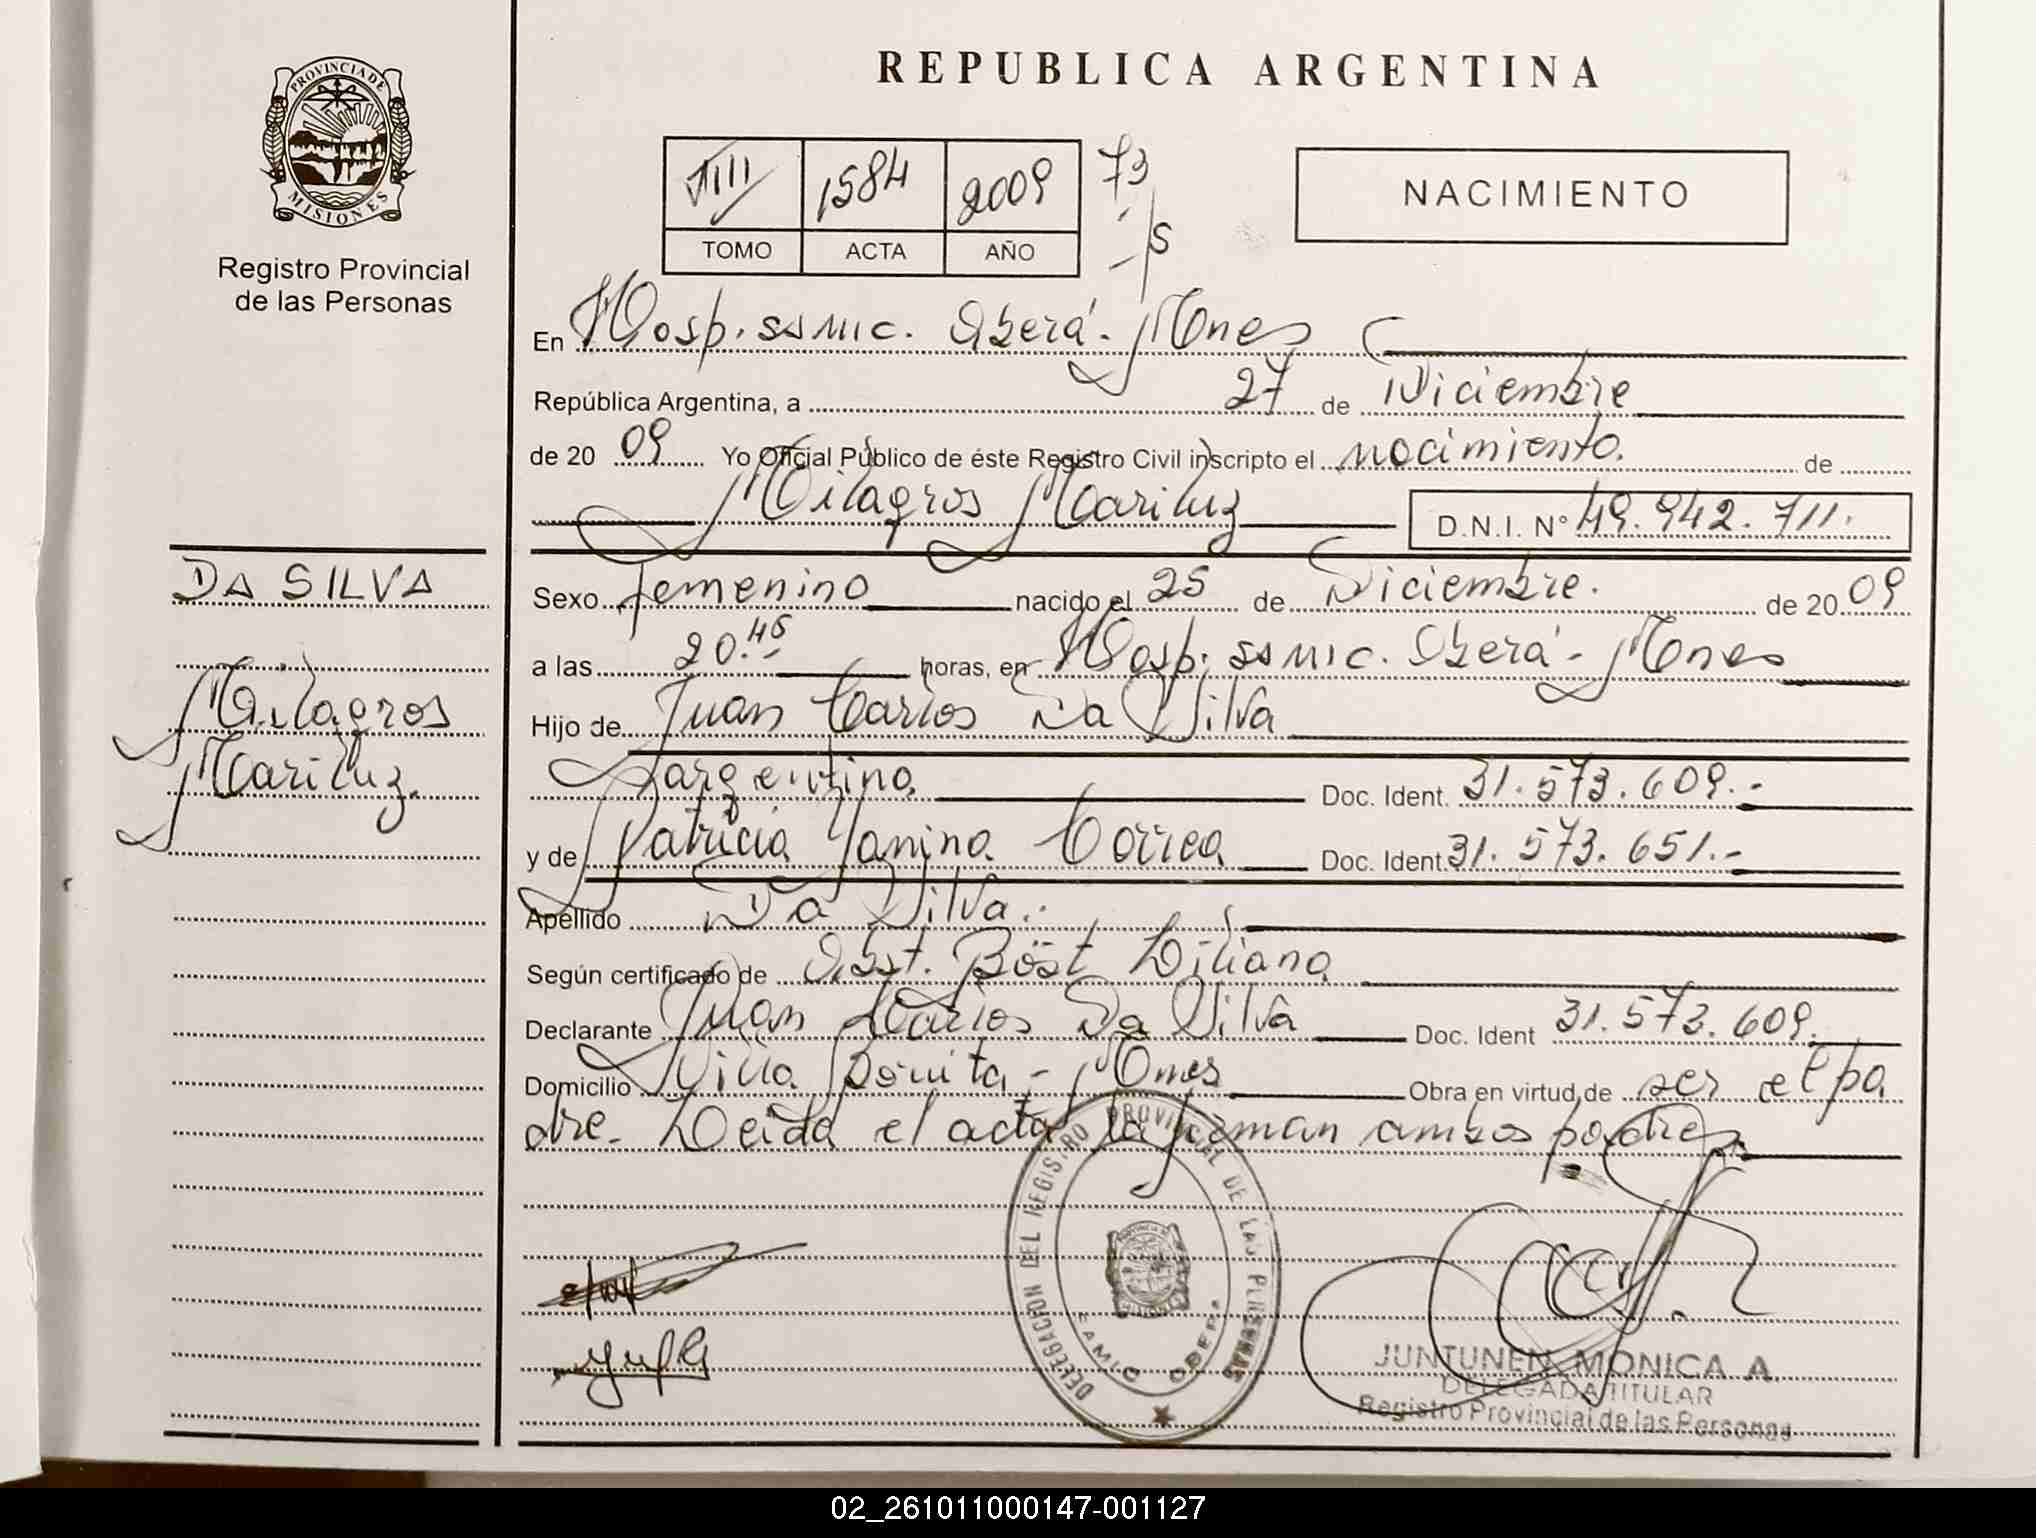 REPUBLICA ARGENTINA
PROVINCIA DE
MISIONES
Registro Provincial
de las Personas
VIII 1584 2009 73
TOMO ACTA AÑO
NACIMIENTO
En Hosp. SSMIC. Oberá - Mnes
República Argentina, a 27 de Diciembre
de 20 09 Yo Oficial Público de éste Registro Civil inscripto el nacimiento. de
Milagros Mariluz D.N.I. Nº 49.942.711.
DA SILVA
Milagros
Mariluz.
Sexo femenino nacido el 25 de Diciembre. de 20 09
a las 20.45 horas, en Hosp. SSMIC. Oberá - Mnes
Hijo de Juan Carlos Da Silva
argentino. Doc. Ident. 31.573.609.-
y de Patricia Yanina Correa Doc. Ident 31.573.651.-
Apellido Da Silva.
Según certificado de Obst. Böst Liliana
Declarante Juan Carlos Da Silva Doc. Ident 31.573.609.
Domicilio Villa Bonita - Mnes Obra en virtud de ser el pa
dre. Leida el acta la firman ambos padres
DELEGACION DEL REGISTRO PROVINCIAL DE LAS PERSONAS
SAMIC OBERA
JUNTUNEN MONICA A
DELEGADA TITULAR
Registro Provincial de las Personas
02_261011000147-001127